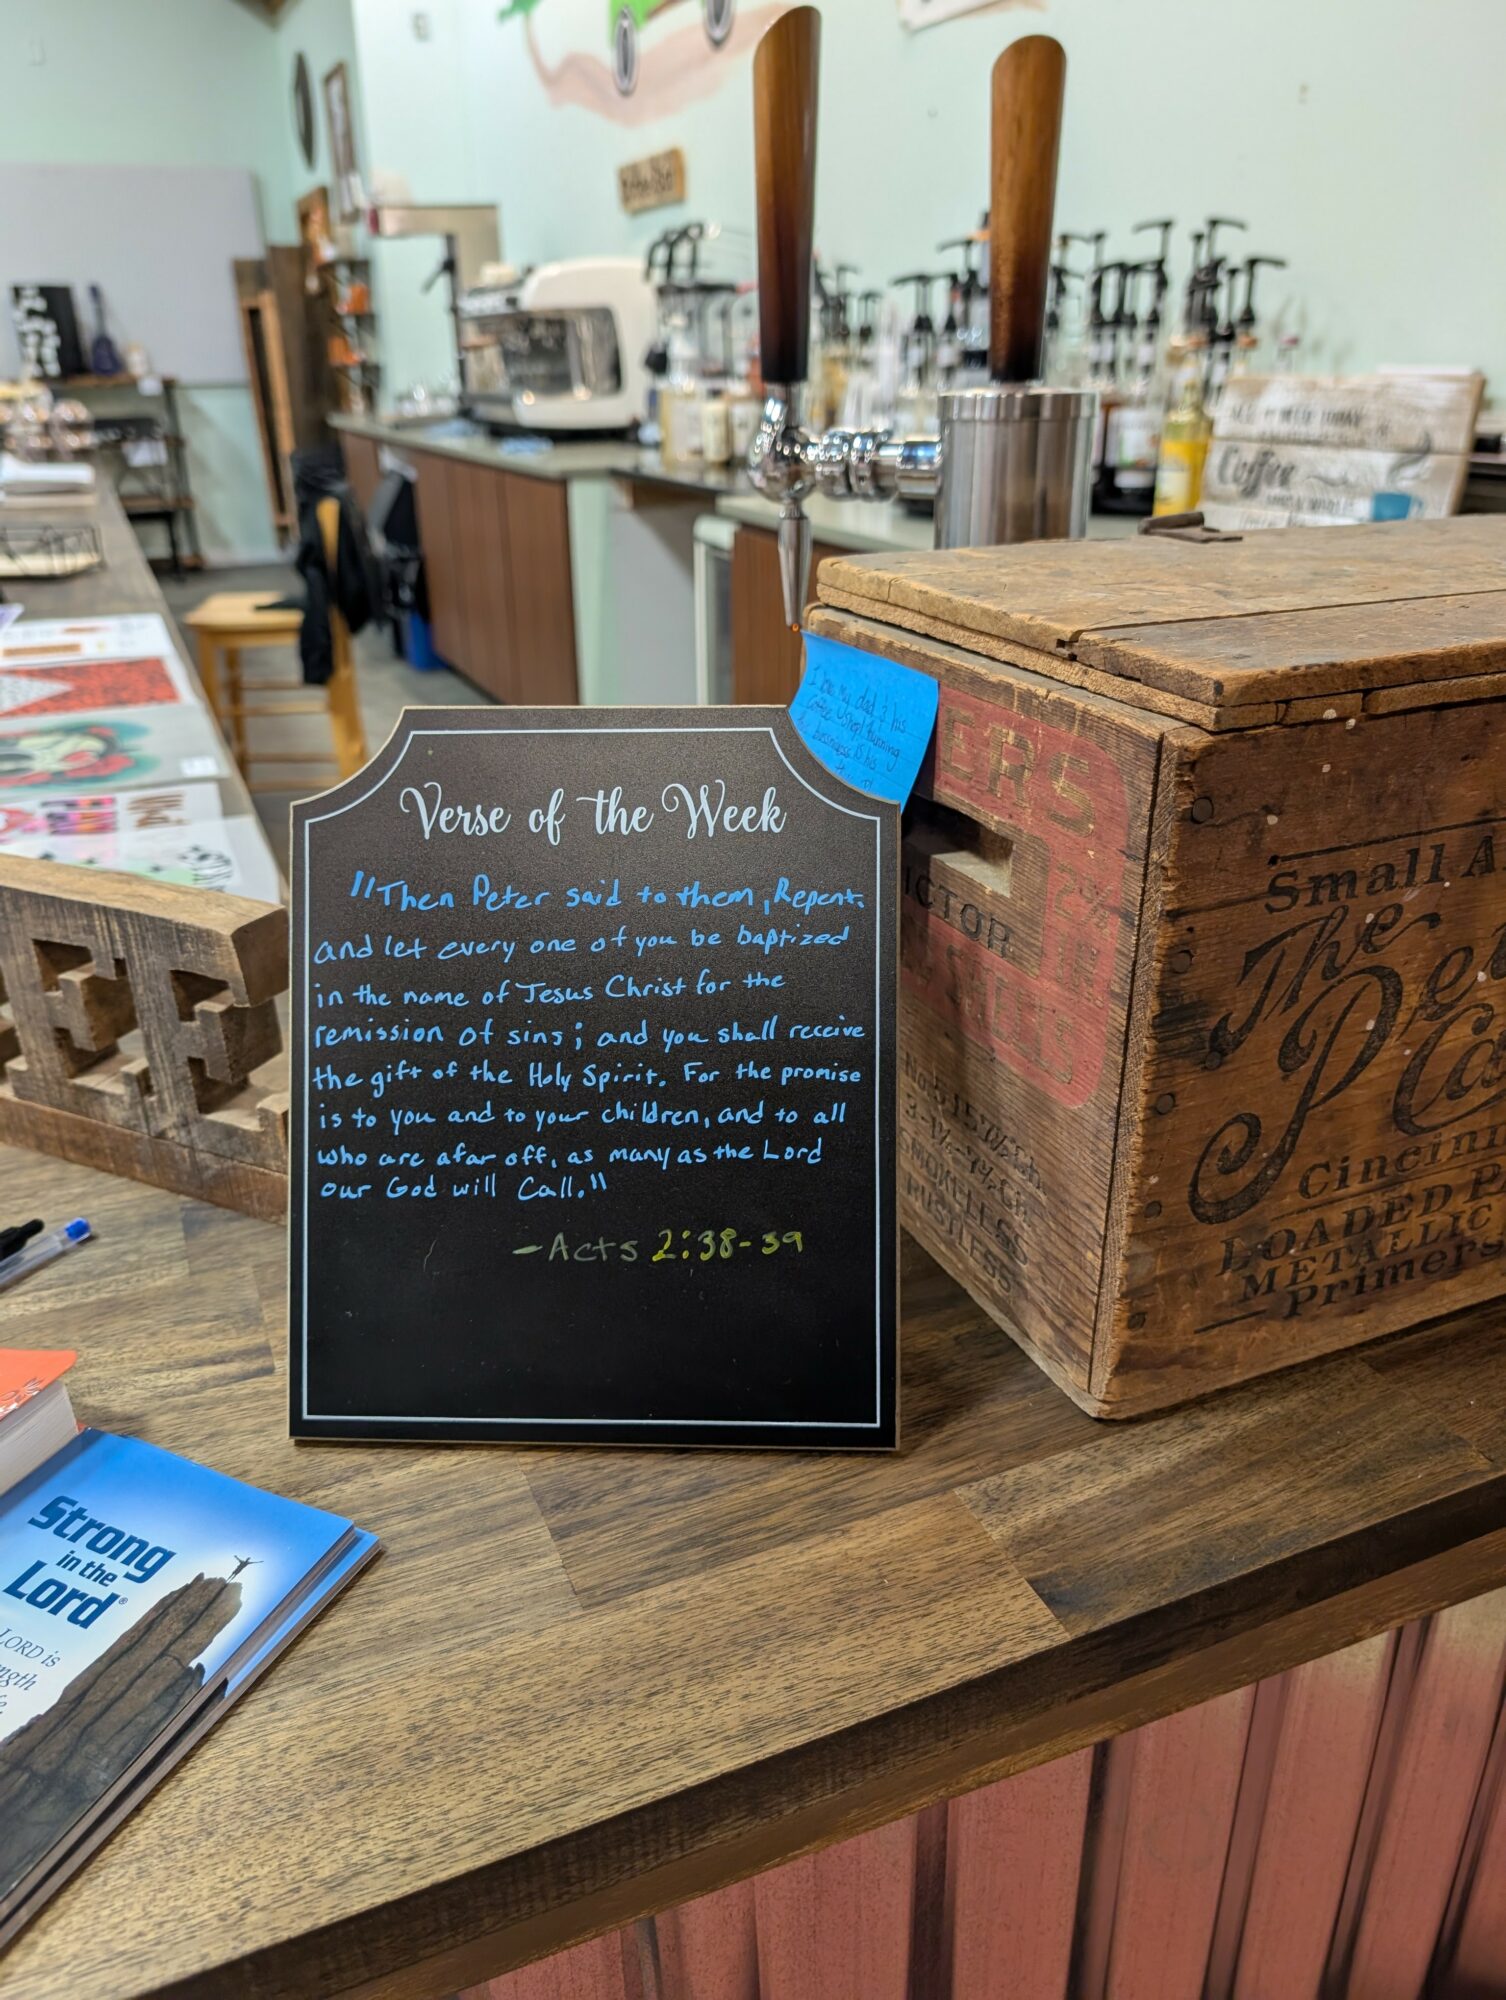 Coffee
I love my dad & his
coffee
running
business is his
Verse of the Week
"Then Peter said to them, Repent,
and let every one of you be baptized
in the name of Jesus Christ for the
remission of sins; and you shall receive
the gift of the Holy Spirit. For the promise
is to you and to your children, and to all
who are afar off, as many as the Lord
our God will call."
-Acts 2:38-39
EE
ERS
2¾
ICTOR
SMOKELESS
RUSTLESS
Small A
The
Pe
Ca
Cincinn
LOADED P
METALLIC
Primers
Strong
in the
Lord®
LORD is
ngth